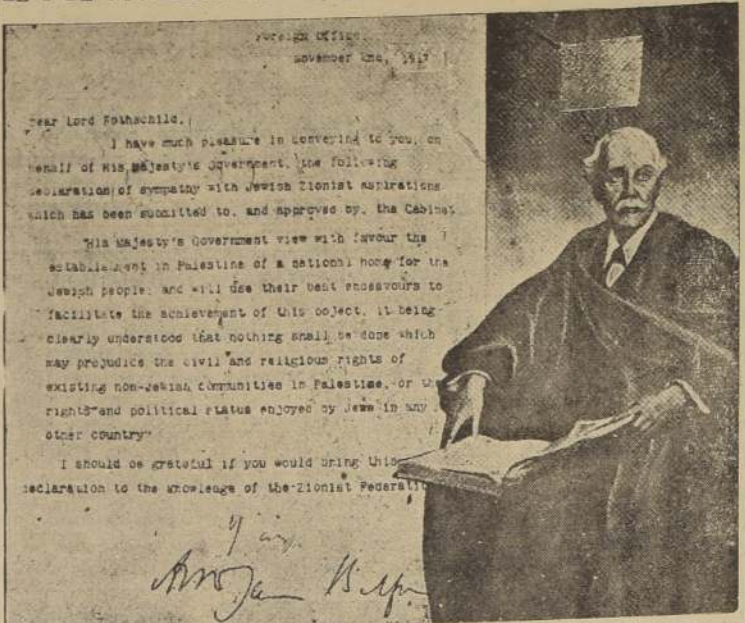 Foreign Office,
November 2nd, 1917
Dear Lord Rothschild,
I have much pleasure in conveying to you, on
behalf of His Majesty's Government, the following
declaration of sympathy with Jewish Zionist aspirations
which has been submitted to, and approved by, the Cabinet
"His Majesty's Government view with favour the
establishment in Palestine of a national home for the
Jewish people, and will use their best endeavours to
facilitate the achievement of this object, it being
clearly understood that nothing shall be done which
may prejudice the civil and religious rights of
existing non-Jewish communities in Palestine, or the
rights and political status enjoyed by Jews in any
other country"
I should be grateful if you would bring this
declaration to the knowledge of the Zionist Federation